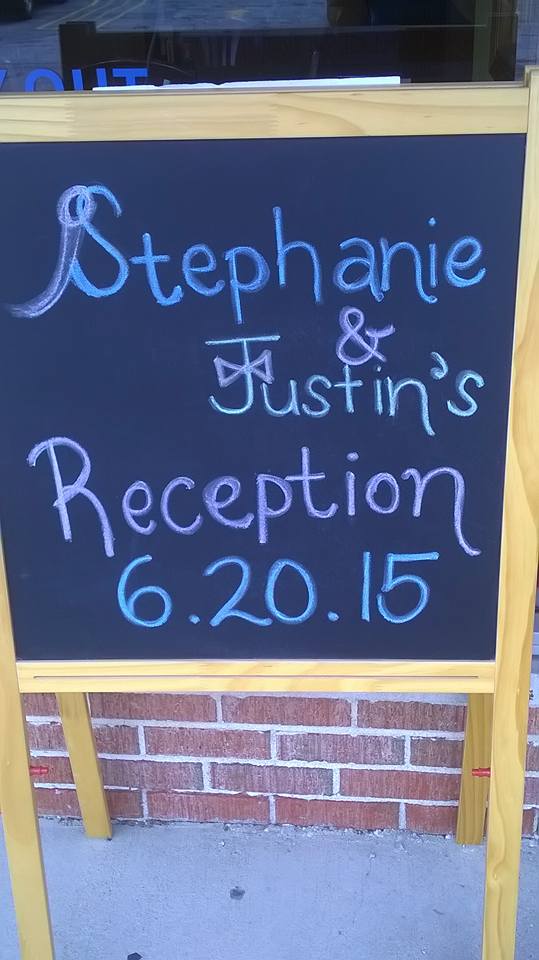 OUT
Stephanie
&
Justin's
Reception
6.20.15